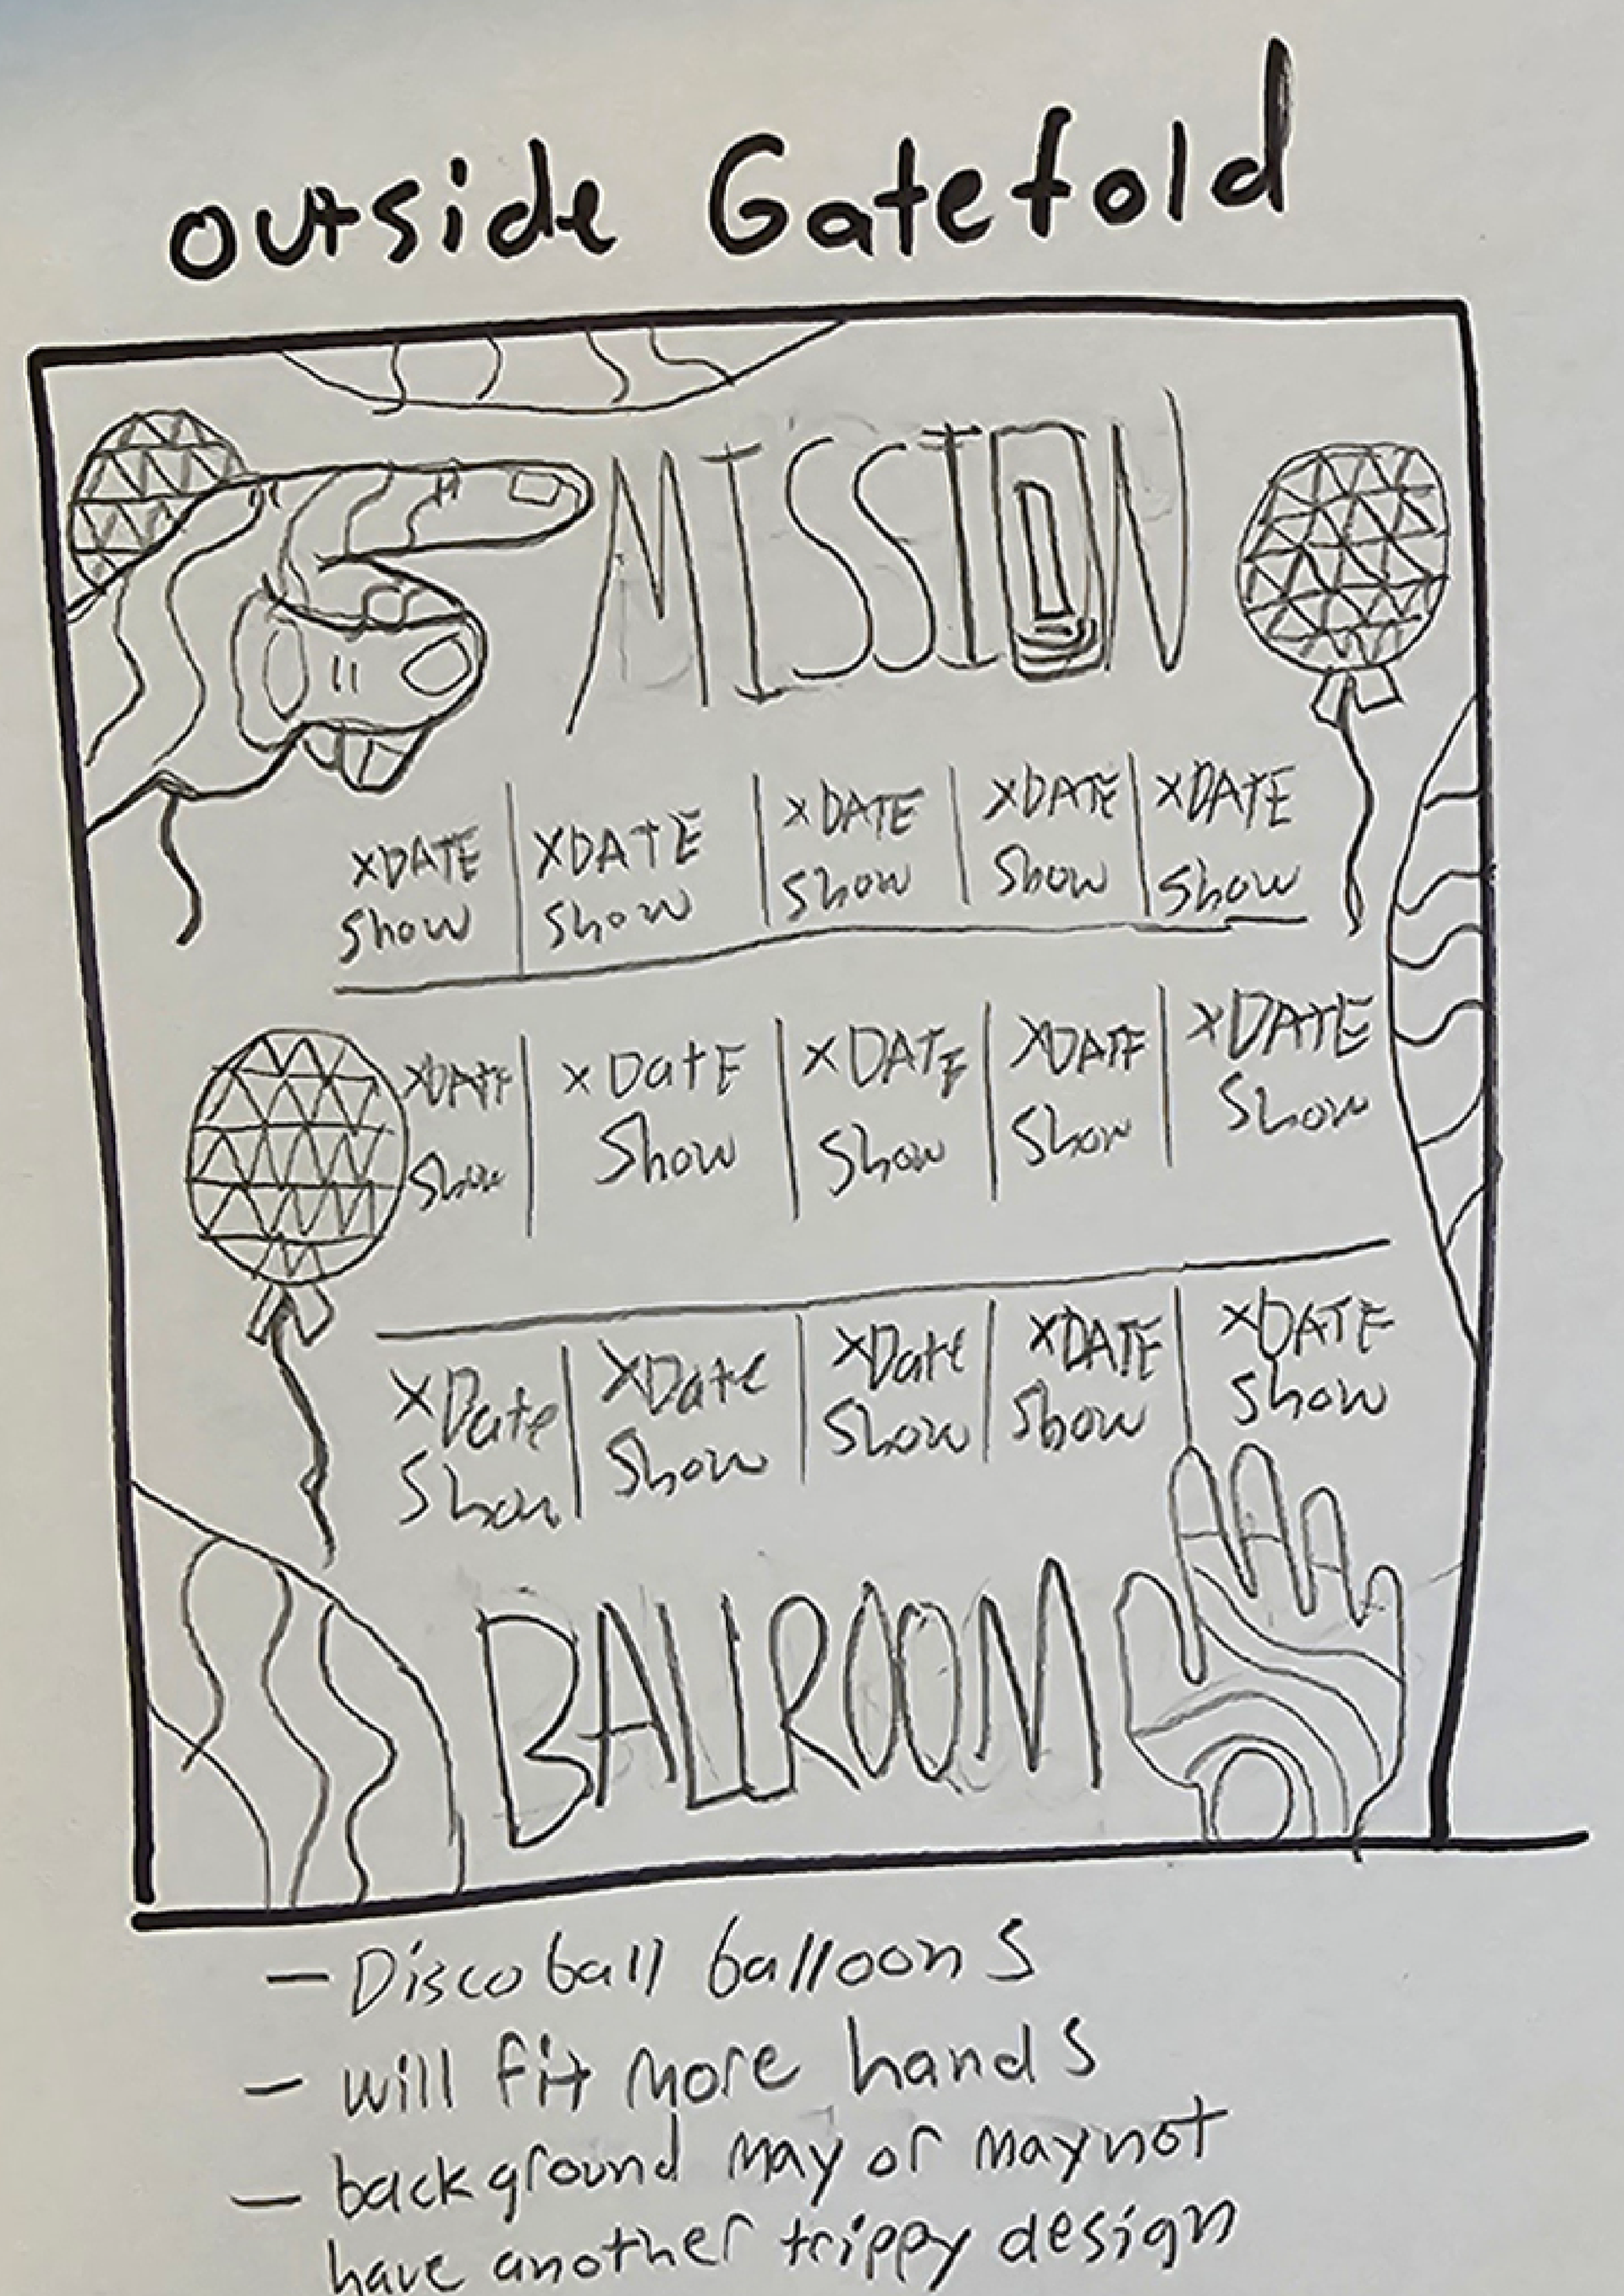 outside Gatefold
MISSION
XDATE XDATE XDATE XDATE XDATE
Show Show Show Show Show
XDATE XDatE XDATE XDATE XDATE
Show Show Show Show Show
XDate XDate XDate XDATE XDATE
Show Show Show Show Show
BALLROOM
— Disco ball balloons
— will fit more hands
— background may or may not
have another trippy design